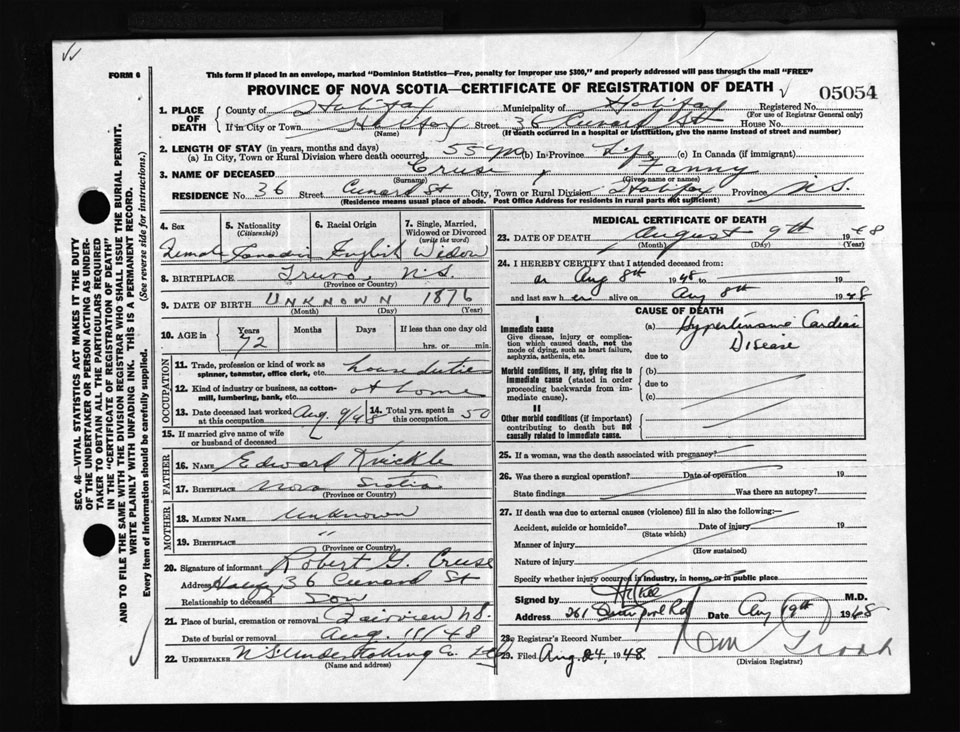 FORM 6
This form if placed in an envelope, marked "Dominion Statistics—Free, penalty for improper use $300," and properly addressed will pass through the mail "FREE"
PROVINCE OF NOVA SCOTIA—CERTIFICATE OF REGISTRATION OF DEATH
05054
1. PLACE OF DEATH
County of Halifax Municipality of Halifax Registered No.
(For use of Registrar General only)
If in City or Town Halifax Street 36 Cunard St House No.
(Name) (If death occurred in a hospital or institution, give the name instead of street and number)
2. LENGTH OF STAY (in years, months and days)
(a) In City, Town or Rural Division where death occurred 55 yrs (b) In Province Life (c) In Canada (if immigrant)
3. NAME OF DECEASED Cruse, Fanny
(Surname) (Given name or names)
RESIDENCE No. 36 Street Cunard St City, Town or Rural Division Halifax Province N.S.
(Residence means usual place of abode. Post Office Address for residents in rural parts not sufficient)
4. Sex
Female
5. Nationality
(Citizenship)
Canadian
6. Racial Origin
English
7. Single, Married, Widowed or Divorced
(write the word)
Widow
8. BIRTHPLACE Truro, N.S.
(Province or Country)
9. DATE OF BIRTH UNKNOWN 1876
(Month) (Day) (Year)
10. AGE in
Years Months Days If less than one day old
72 hrs. or min.
OCCUPATION
11. Trade, profession or kind of work as spinner, teamster, office clerk, etc. house duties
12. Kind of industry or business, as cotton-mill, lumbering, bank, etc. at home
13. Date deceased last worked at this occupation Aug 9/48
14. Total yrs. spent in this occupation 50
15. If married give name of wife or husband of deceased
FATHER
16. NAME Edward Knickle
17. BIRTHPLACE Nova Scotia
(Province or Country)
MOTHER
18. MAIDEN NAME Unknown
19. BIRTHPLACE "
(Province or Country)
20. Signature of informant Robert G. Cruse
Address 36 Cunard St
Relationship to deceased Son
21. Place of burial, cremation or removal Fairview N.S.
Date of burial or removal Aug. 11/48
22. UNDERTAKER N S Undertaking Co. Ltd
(Name and address)
MEDICAL CERTIFICATE OF DEATH
23. DATE OF DEATH August 9th 1948
(Month) (Day) (Year)
24. I HEREBY CERTIFY that I attended deceased from:
on Aug 8th 1948 to 19
and last saw her alive on Aug 8th 1948
CAUSE OF DEATH
I
Immediate cause
Give disease, injury or complication which caused death, not the mode of dying, such as heart failure, asphyxia, asthenia, etc.
(a) Hypertensive Cardiac
Disease
due to
Morbid conditions, if any, giving rise to immediate cause (stated in order proceeding backwards from immediate cause).
(b)
due to
(c)
II
Other morbid conditions (if important) contributing to death but not causally related to immediate cause.
25. If a woman, was the death associated with pregnancy?
26. Was there a surgical operation? Date of operation 19
State findings Was there an autopsy?
27. If death was due to external causes (violence) fill in also the following:
Accident, suicide or homicide? Date of injury 19
(State which)
Manner of injury
(How sustained)
Nature of injury
Specify whether injury occurred in industry, in home, or in public place
Signed by M.D.
Address 261 Date Aug 19th 1948
28. Registrar's Record Number
29. Filed Aug. 24, 1948
(Division Registrar)
SEC. 46—VITAL STATISTICS ACT MAKES IT THE DUTY
OF THE UNDERTAKER OR PERSON ACTING AS UNDER-
TAKER TO OBTAIN ALL THE PARTICULARS REQUIRED
IN THE "CERTIFICATE OF REGISTRATION OF DEATH"
AND TO FILE THE SAME WITH THE DIVISION REGISTRAR WHO SHALL ISSUE THE BURIAL PERMIT.
WRITE PLAINLY WITH UNFADING INK. THIS IS A PERMANENT RECORD.
Every item of Information should be carefully supplied. (See reverse side for instructions.)